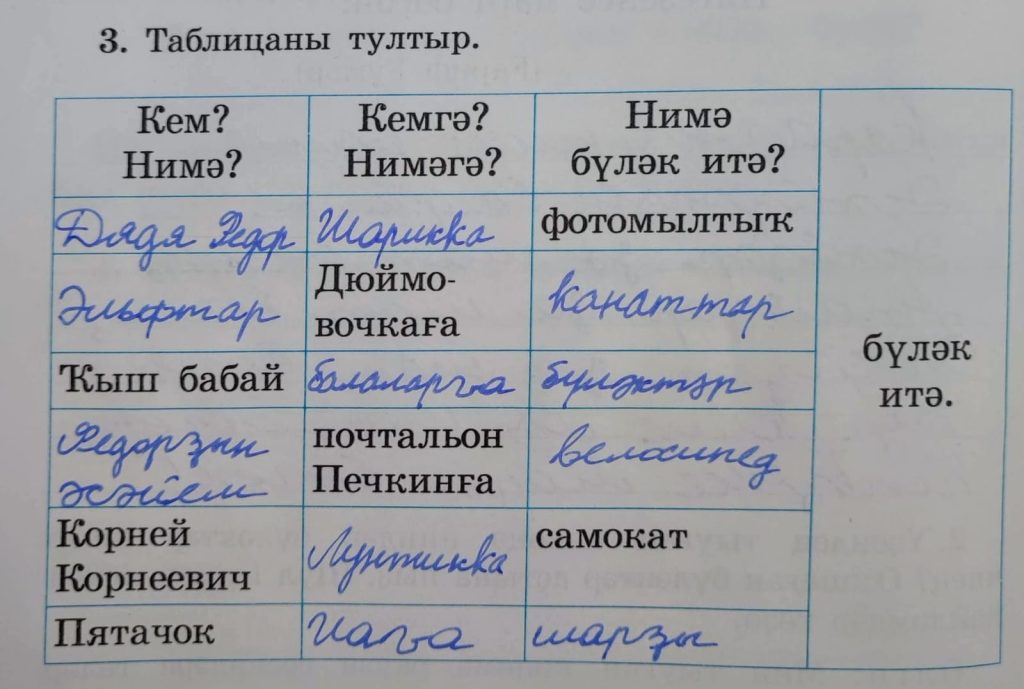 3. Таблицаны тултыр.
Кем? Кемгә? Нимә
Нимә? Нимәгә? бүләк итә?
Дядя Федор Шарикка фотомылтыҡ
Эльфтар Дюймо- ҡанаттар
вочкаға
Ҡыш бабай балаларға бүләктәр
бүләк
итә.
Федорҙың почтальон велосипед
әсәйем Печкинға
Корней Лунтикка самокат
Корнеевич
Пятачок Иаға шарҙы